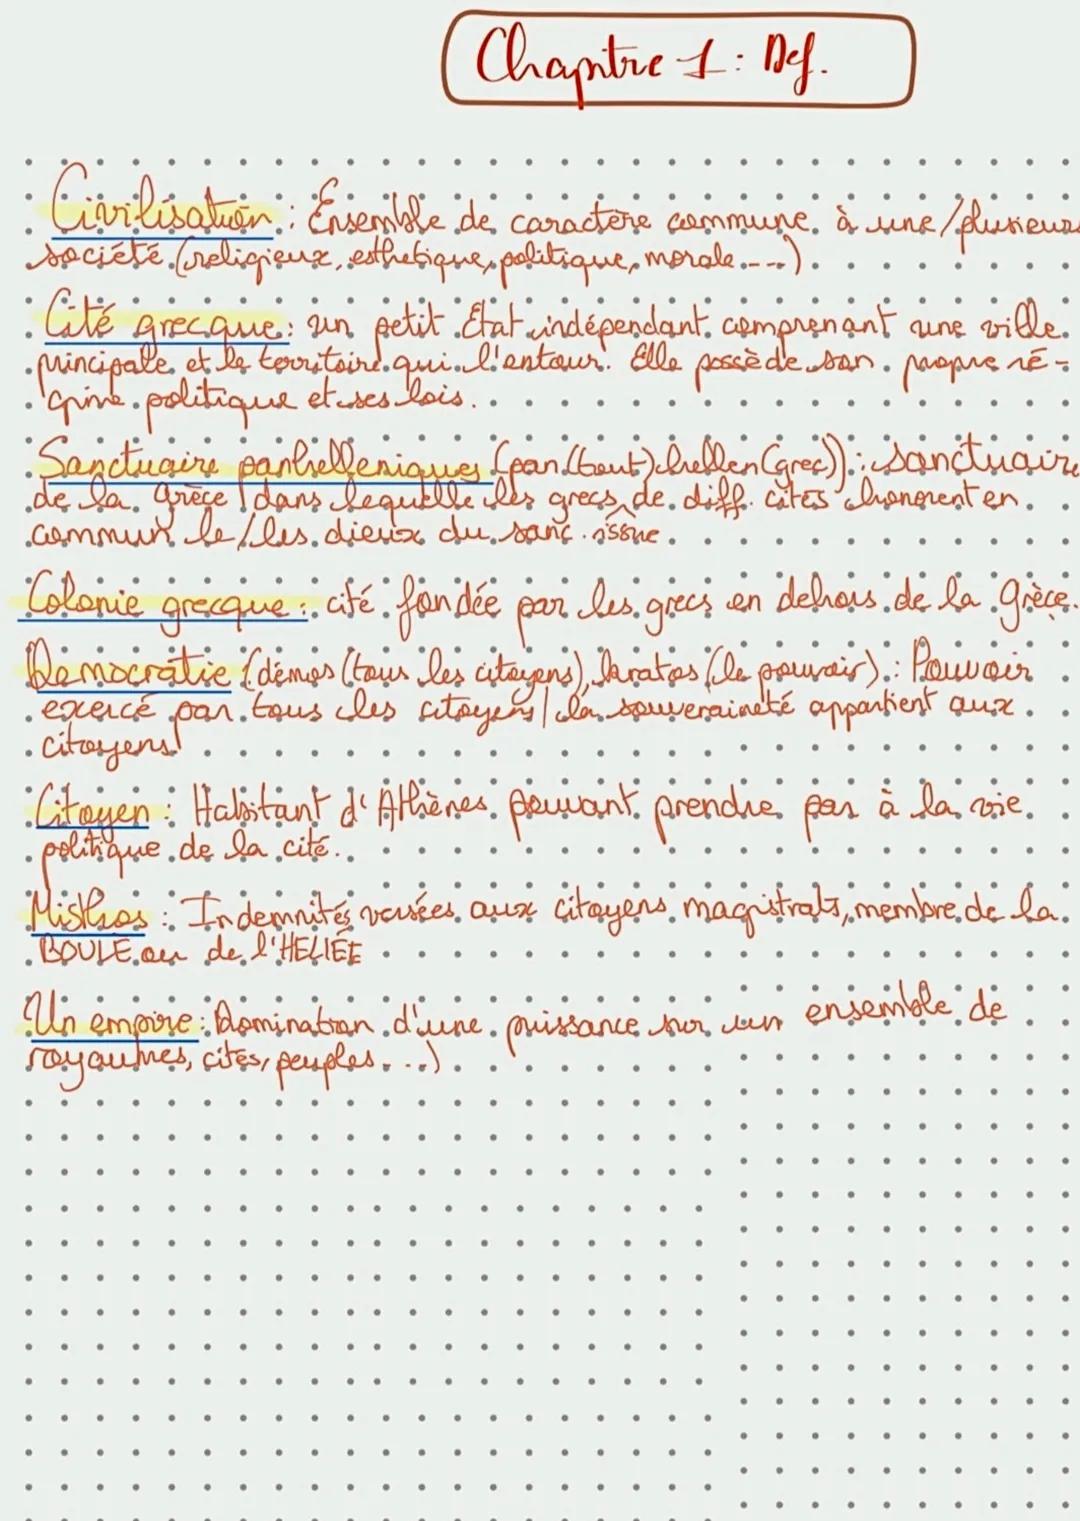 Chapitre 1 : Def.
Civilisation : Ensemble de caractère commune à une/plusieurs
société (religieux, esthetique, politique, morale...).
Cité grecque : un petit État indépendant comprenant une ville
principale et le territoire qui l'entour. Elle possède son propre ré-
gime politique et ses lois.
Sanctuaire panhelleniques (pan (tout) hellen (grec)) : sanctuaire
de la Grèce / dans lequelle les grecs de diff. cités honorent en
commun le/les dieux du sanc. issue.
Colonie grecque : cité fondée par les grecs en dehors de la Grèce.
Democratie (démos (tous les citoyens), kratos (le pouvoir) : Pouvoir
exercé par tous les citoyens / la souveraineté appartient aux
citoyens
Citoyen : Habitant d'Athènes pouvant prendre par à la vie
politique de la cité.
Misthos : Indemnités versées aux citoyens magistrats, membre de la
BOULÉ ou de l'HELIÉE
Un empire : Domination d'une puissance sur un ensemble de
royaumes, cités, peuples...)